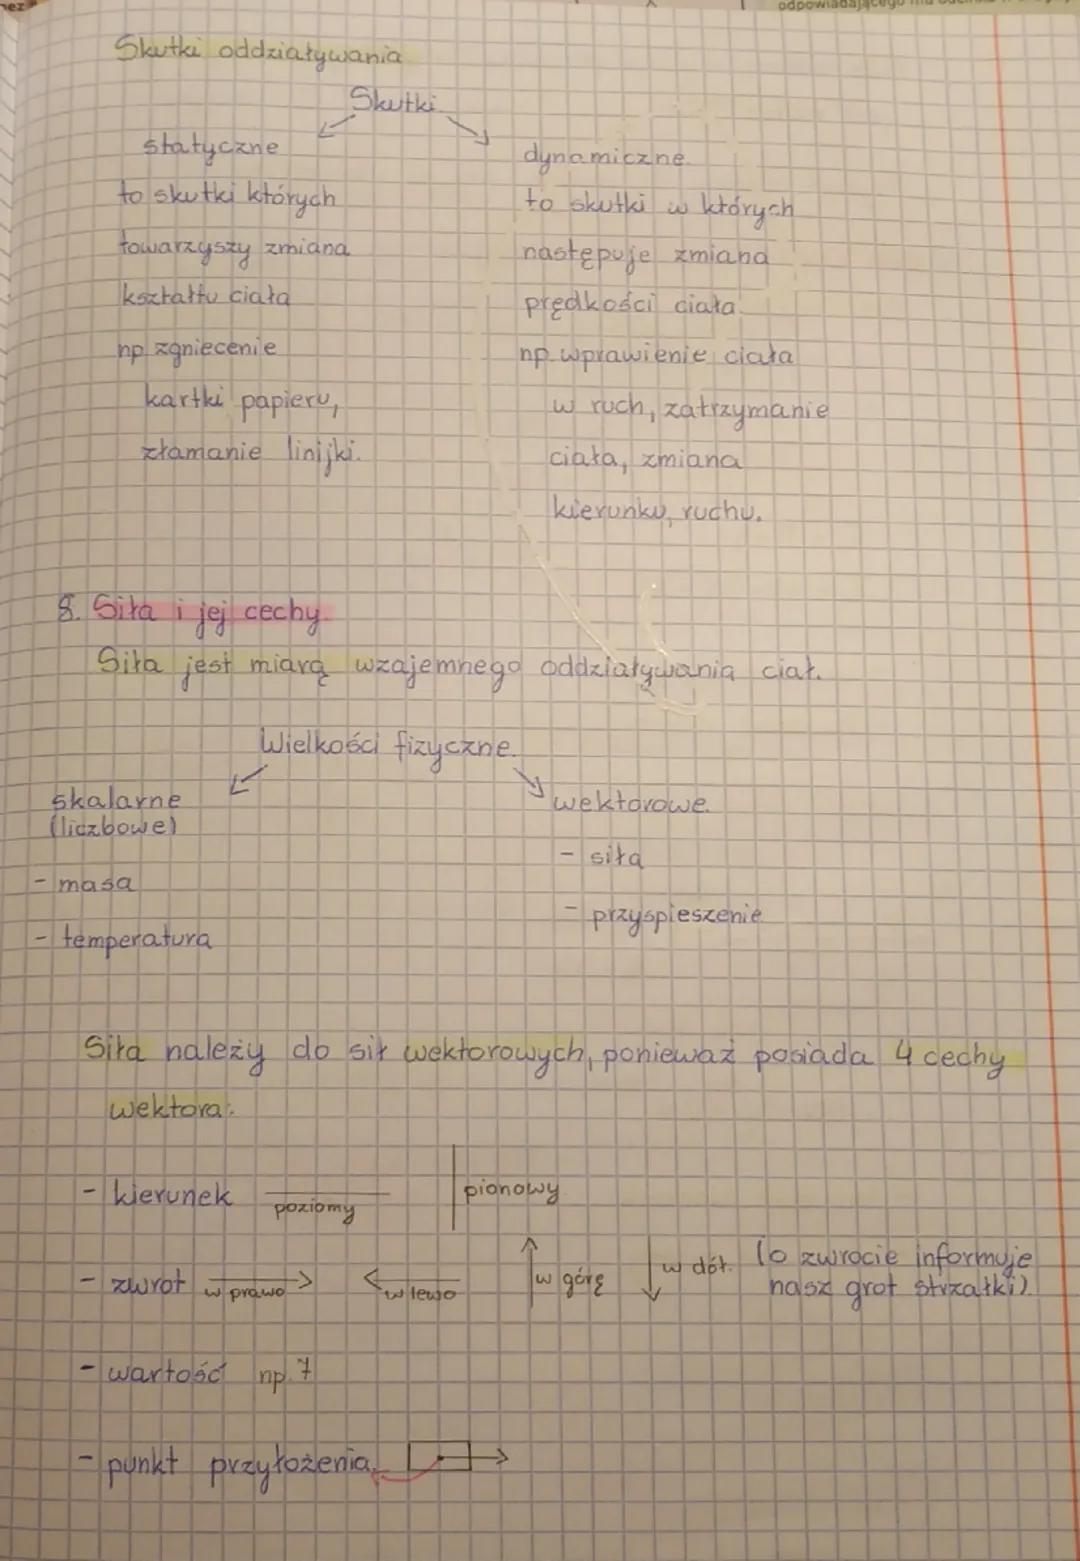 odpowiadającego mu
Skutki oddziaływania
Skutki
statyczne
to skutki których
towarzyszy zmiana
kształtu ciała
np. zgniecenie
kartki papieru,
złamanie linijki.
dynamiczne.
to skutki w których
następuje zmiana
prędkości ciała.
np. wprawienie ciała
w ruch, zatrzymanie
ciała, zmiana
kierunku, ruchu.
8. Siła i jej cechy.
Siła jest miarą wzajemnego oddziaływania ciał.
Wielkości fizyczne.
skalarne
(liczbowe)
- masa
- temperatura
wektorowe.
- siła
- przyspieszenie
Siła należy do sił wektorowych, ponieważ posiada 4 cechy
wektora:
- kierunek poziomy pionowy
- zwrot w prawo w lewo w górę w dół. (o zwrocie informuje
nasz grot strzałki).
- wartość np. 7
- punkt przyłożenia.